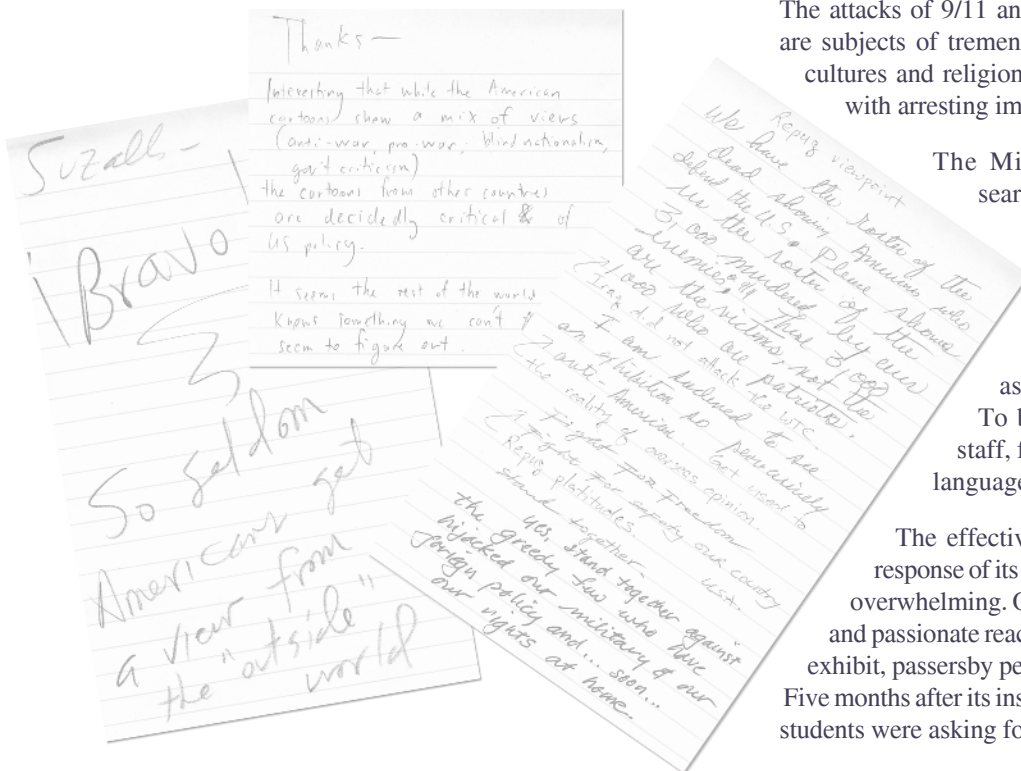 Suzall-
Bravo
So seldom
Americans get
a view from
the "outside"
world
Thanks —
Interesting that while the American
cartoons show a mix of views
(anti-war, pro-war, blind nationalism,
gov't criticism)
the cartoons from other countries
are decidedly critical of
US policy.
It seems the rest of the world
knows something we can't
seem to figure out.
Repug viewpoint
We have the roster of the
dead showing Americans who
defend the U.S. Please show
us the roster of the
3,000 murdered by our
enemies. 9/11 The 3,000
are the victims, not the
1,000 who are patriots.
Iraq did not attack the WTC
I am saddened to see
an exhibition so perniciously
anti-American. Get used to
the reality of overseas opinion.
Fight For Freedom
Fight For our country
Repug platitudes. USA.
stand together
yes, stand together against
the greedy few who have
hijacked our military & our
foreign policy and... soon...
our rights at home.
The attacks of 9/11 an
are subjects of tremen
cultures and religion
with arresting im
The Mi
sear
as
To b
staff, f
language
The effectiv
response of its
overwhelming. O
and passionate reac
exhibit, passersby pe
Five months after its ins
students were asking fo